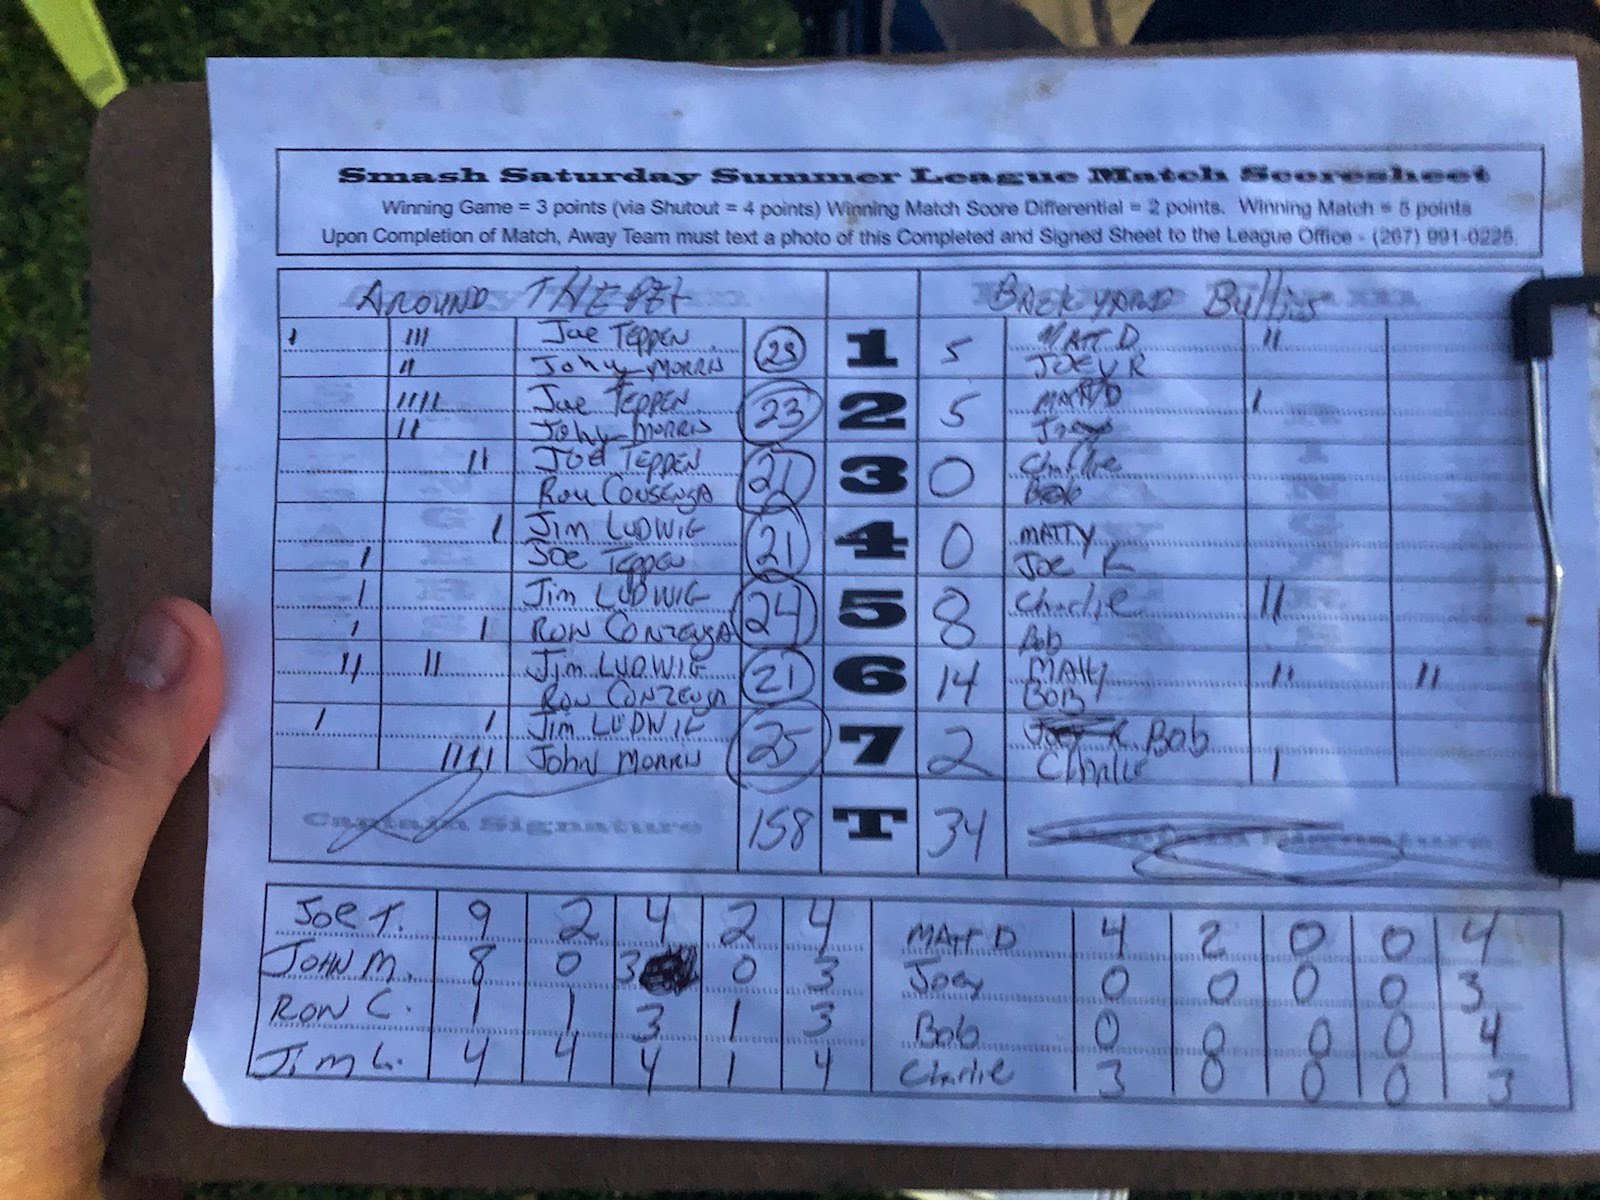 Smash Saturday Summer League Match Scoresheet
Winning Game = 3 points (via Shutout = 4 points) Winning Match Score Differential = 2 points. Winning Match = 5 points
Upon Completion of Match, Away Team must text a photo of this Completed and Signed Sheet to the League Office - (267) 991-0226.
AROUND THE Backyard Bullies
Joe TEPPEN 23 1 5 MATT D
John MORRIS JOEY R
Joe TEPPEN 23 2 5 MATT D
John MORRIS
JOE TEPPEN 21 3 0 Charlie
RON CONSENZA Bob
Jim LUDWIG 21 4 0 MATTY
JOE TEPPEN JOE R
Jim LUDWIG 24 5 8 Charlie
RON CONZENZA Bob
Jim LUDWIG 21 6 14 MATTY
RON CONZENZA BOB
Jim LUDWIG 25 7 2 Bob
JOHN MORRIS Charlie
Captain Signature 158 T 34 Captain Signature
JOE T. 9 2 4 2 4 MATT D 4 2 0 0 4
JOHN M. 8 0 3 0 3 Joey 0 0 0 0 3
RON C. 1 1 3 1 3 Bob 0 0 0 0 4
Jim L. 4 4 4 1 4 Charlie 3 0 0 0 3